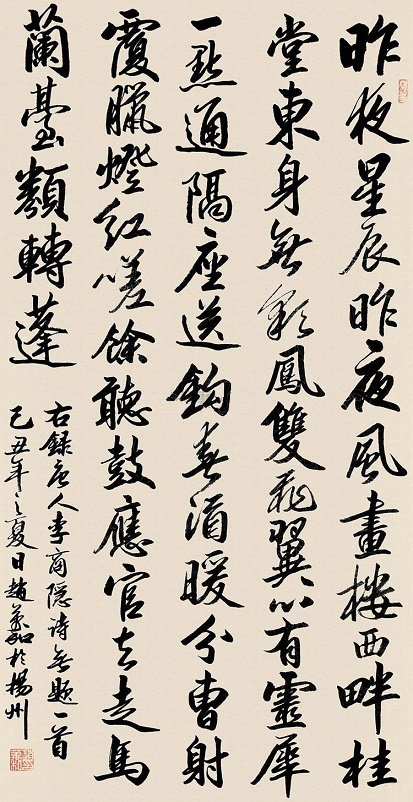 昨夜星辰昨夜風畫樓西畔桂
堂東身無彩鳳雙飛翼心有靈犀
一點通隔座送鈎春酒暖分曹射
覆臘燈紅嗟餘聽鼓應官去走馬
蘭臺類轉蓬
右錄唐人李商隱詩無題一首
己丑年之夏日趙於揚州